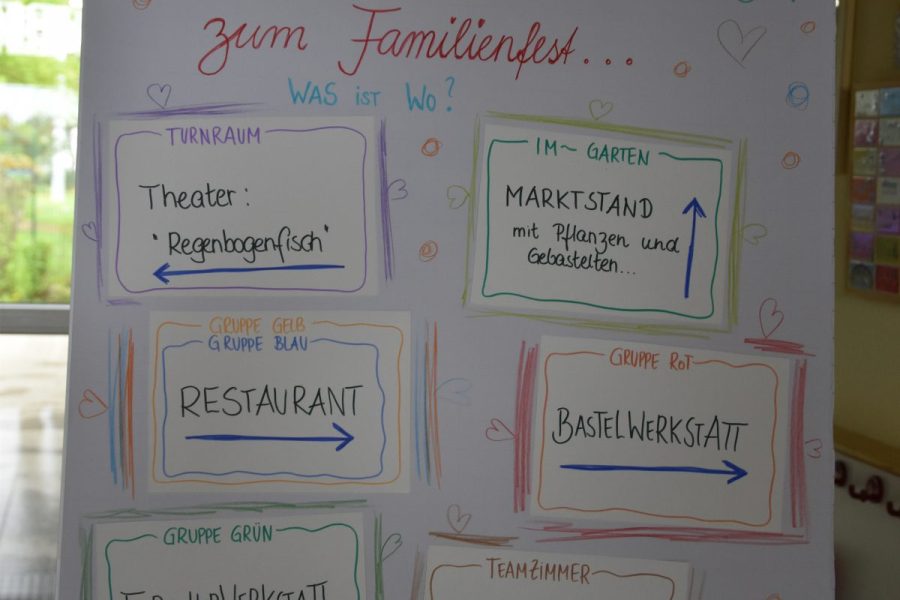 zum Familienfest...
WAS iST WO?
TURNRAUM
Theater:
"Regenbogenfisch"
IM~ GARTEN
MARKTSTAND
mit Pflanzen und
Gebastelten...
GRUPPE GELB
GRUPPE BLAU
RESTAURANT
GRUPPE ROT
BASTELWERKSTATT
GRUPPE GRÜN
TEAMZIMMER